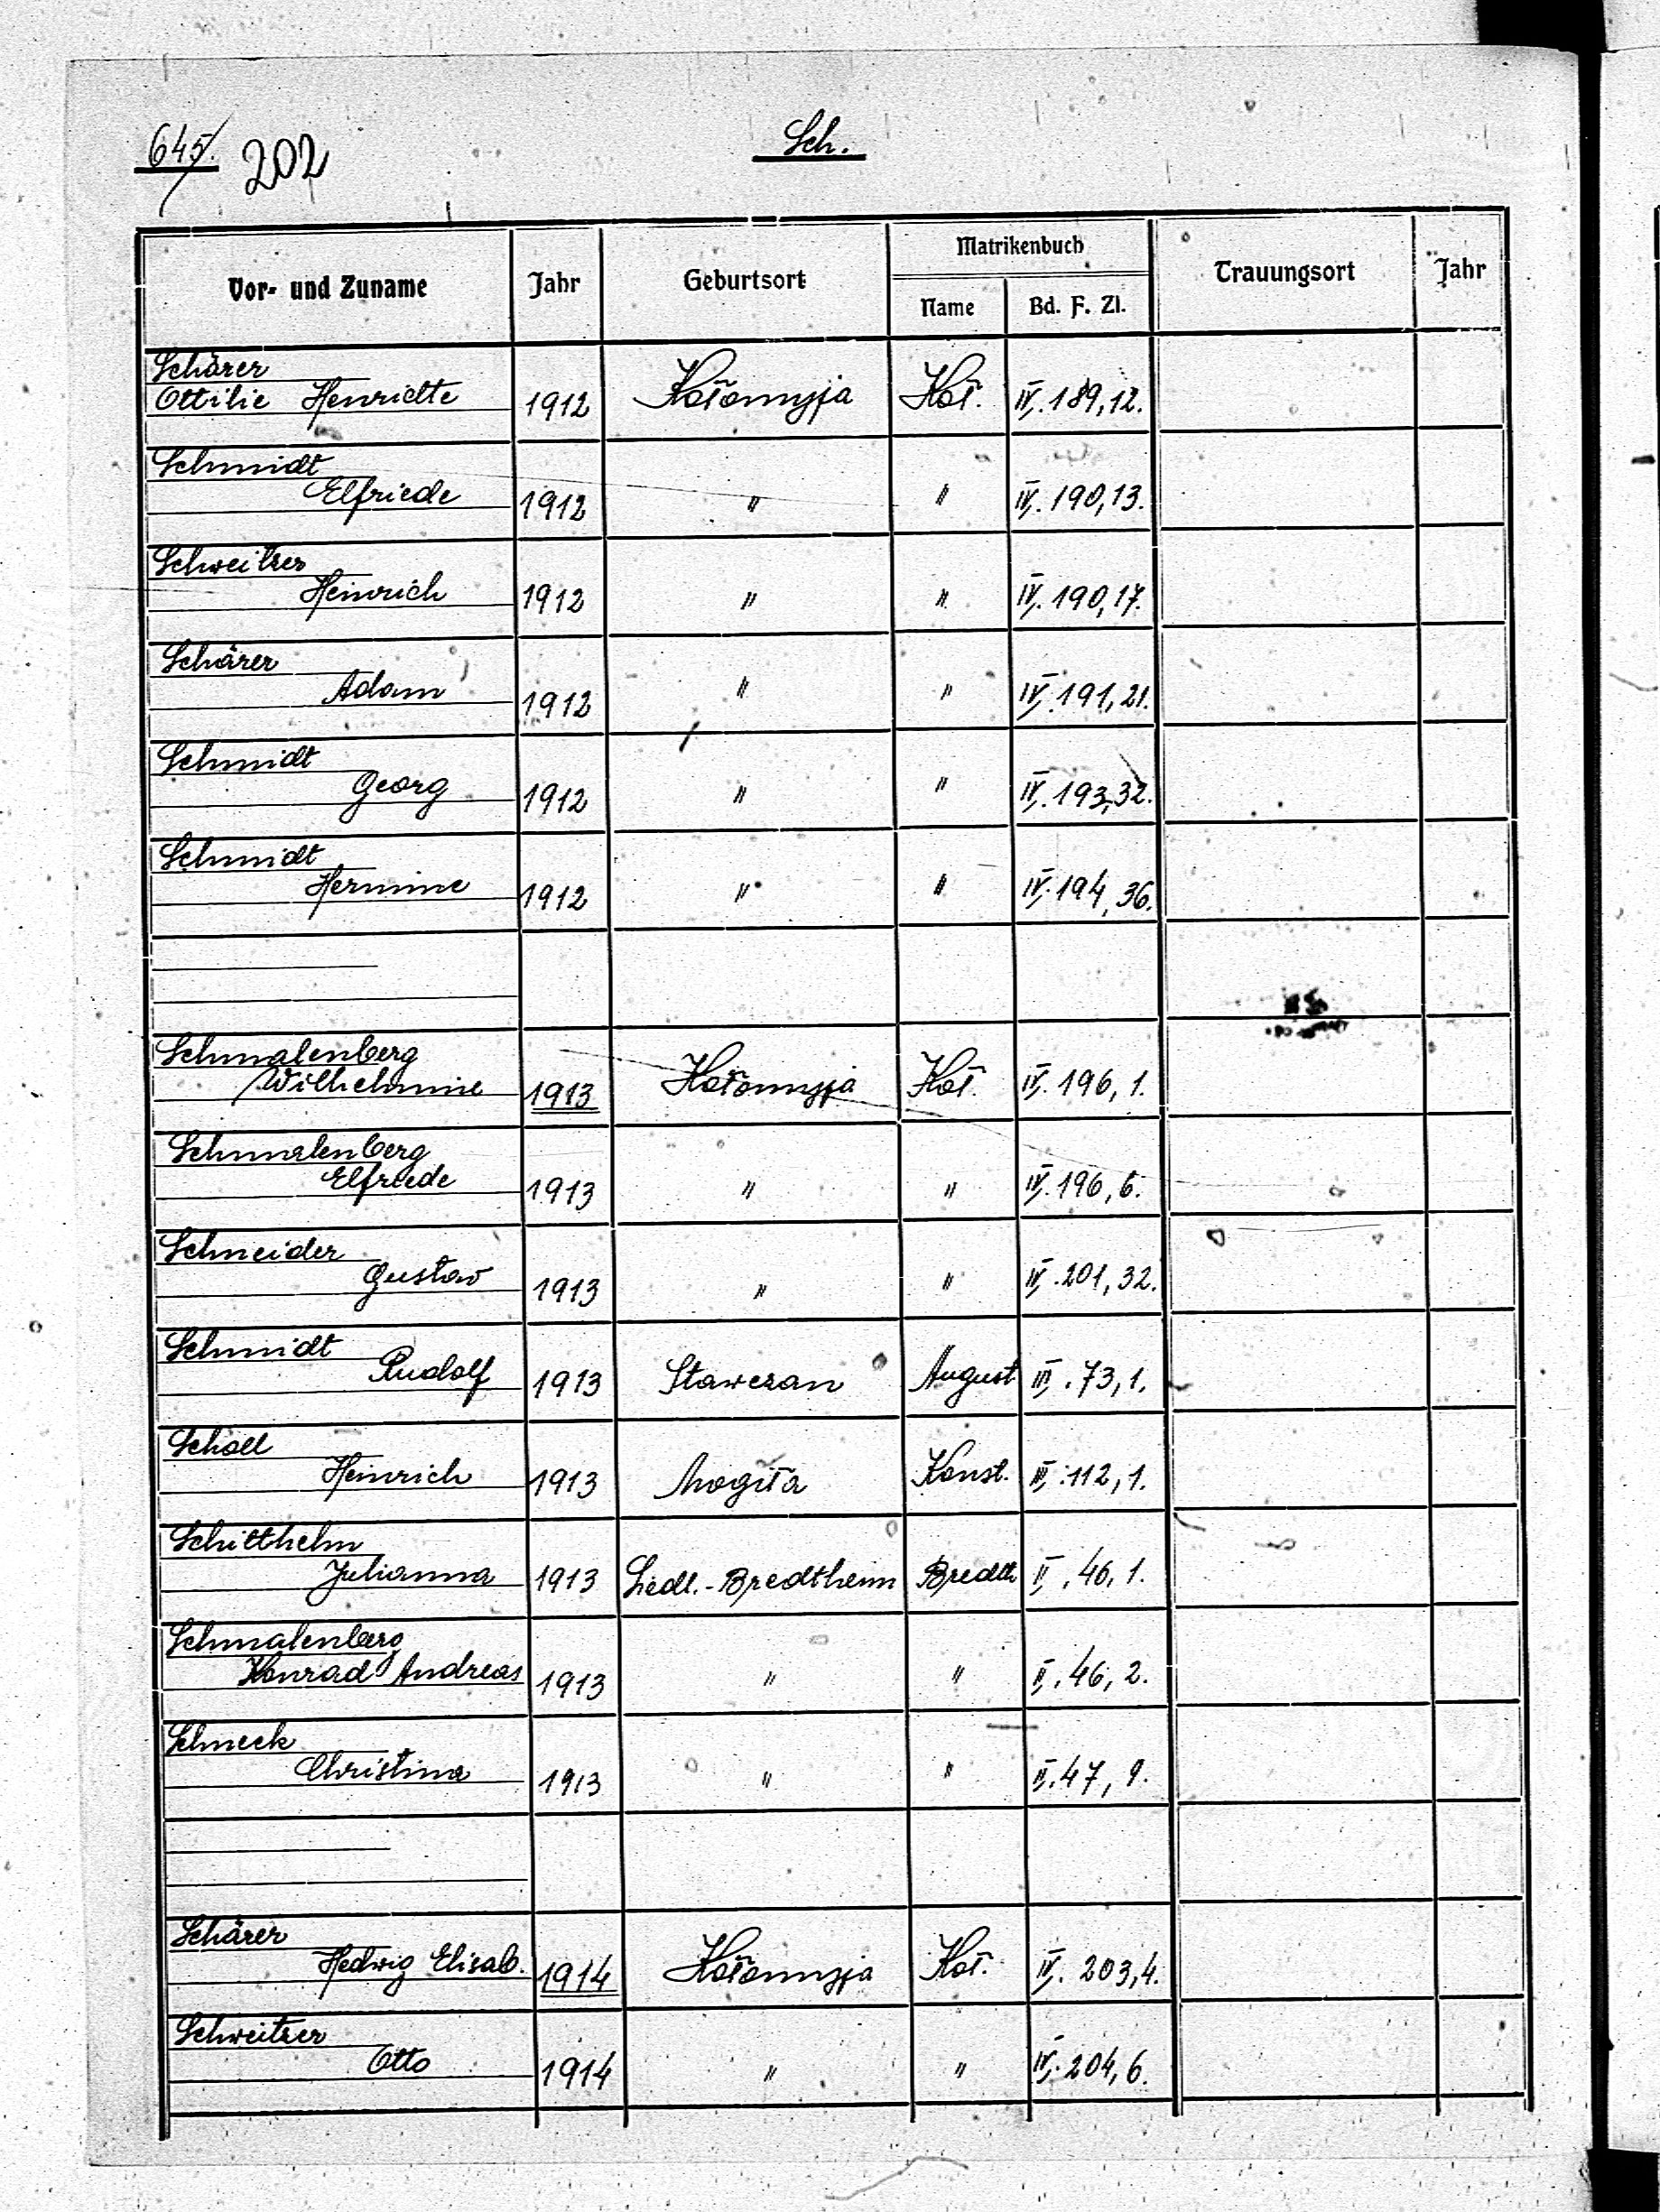 645. 202
Sch.
Vor- und Zuname Jahr Geburtsort Matrikenbuch Trauungsort Jahr
Name Bd. F. Zl.
Schärer
Ottilie Henriette 1912 Kołomyja Koł. IV. 189, 12.
Schmidt
Elfriede 1912 " " IV. 190, 13.
Schweitzer
Heinrich 1912 " " IV. 190, 17.
Schärer
Adam 1912 " " IV. 191, 21.
Schmidt
Georg 1912 " " IV. 193, 32.
Schmidt
Hermine 1912 " " IV. 194, 36.
Schmalenberg
Wilhelmine 1913 Kołomyja Koł. IV. 196, 1.
Schmalenberg
Elfriede 1913 " " IV. 196, 6.
Schneider
Gustav 1913 " " IV. 201, 32.
Schmidt
Rudolf 1913 Stawczan August III. 73, 1.
Scholl
Heinrich 1913 Mogiła Konst. III. 112, 1.
Schitthelm
Julianna 1913 Siedl.-Bredtheim Bredth II. 46, 1.
Schmalenberg
Konrad Andreas 1913 " " II. 46, 2.
Schneck
Christina 1913 " " II. 47, 9.
Schärer
Hedwig Elisab. 1914 Kołomyja Koł. IV. 203, 4.
Schweitzer
Otto 1914 " " IV. 204, 6.